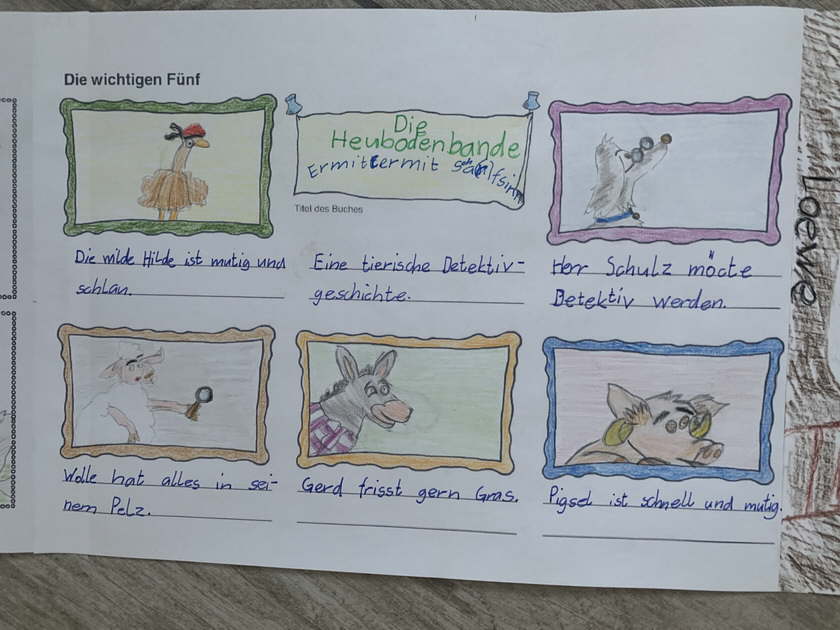 Die wichtigen Fünf
Die
Heubodenbande
Titel des Buches
Die wilde Hilde ist mutig und
schlau.
Eine tierische Detektiv-
geschichte.
Herr Schulz möcte
Detektiv werden.
Wolle hat alles in sei-
nem Pelz.
Gerd frisst gern Gras.
Pigsel ist schnell und mutig.
Loewe